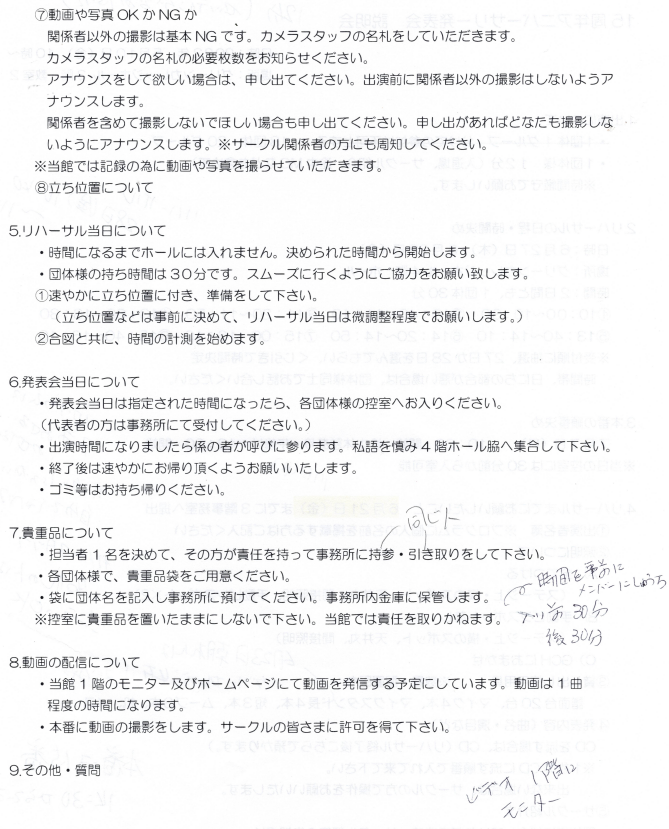 ⑦動画や写真 OK か NG か
関係者以外の撮影は基本 NG です。カメラスタッフの名札をしていただきます。
カメラスタッフの名札の必要枚数をお知らせください。
アナウンスをして欲しい場合は、申し出てください。出演前に関係者以外の撮影はしないようア
ナウンスします。
関係者を含めて撮影しないでほしい場合も申し出てください。申し出があればどなたも撮影しな
いようにアナウンスします。※サークル関係者の方にも周知してください。
※当館では記録の為に動画や写真を撮らせていただきます。
⑧立ち位置について
5.リハーサル当日について
・時間になるまでホールには入れません。決められた時間から開始します。
・団体様の持ち時間は30分です。スムーズに行くようにご協力をお願い致します。
①速やかに立ち位置に付き、準備をして下さい。
（立ち位置などは事前に決めて、リハーサル当日は微調整程度でお願いします。）
②合図と共に、時間の計測を始めます。
6.発表会当日について
・発表会当日は指定された時間になったら、各団体様の控室へお入りください。
（代表者の方は事務所にて受付してください。）
・出演時間になりましたら係の者が呼びに参ります。私語を慎み4階ホール脇へ集合して下さい。
・終了後は速やかにお帰り頂くようお願いいたします。
・ゴミ等はお持ち帰りください。
7.貴重品について
同じ人
・担当者1名を決めて、その方が責任を持って事務所に持参・引き取りをして下さい。
・各団体様で、貴重品袋をご用意ください。
・袋に団体名を記入し事務所に預けてください。事務所内金庫に保管します。
時間を事前に
メンバーに
前 30分
後 30分
※控室に貴重品を置いたままにしないで下さい。当館では責任を取りかねます。
8.動画の配信について
・当館1階のモニター及びホームページにて動画を発信する予定にしています。動画は1曲
程度の時間になります。
・本番に動画の撮影をします。サークルの皆さまに許可を得て下さい。
9.その他・質問
ビデオ 1階に
モニター